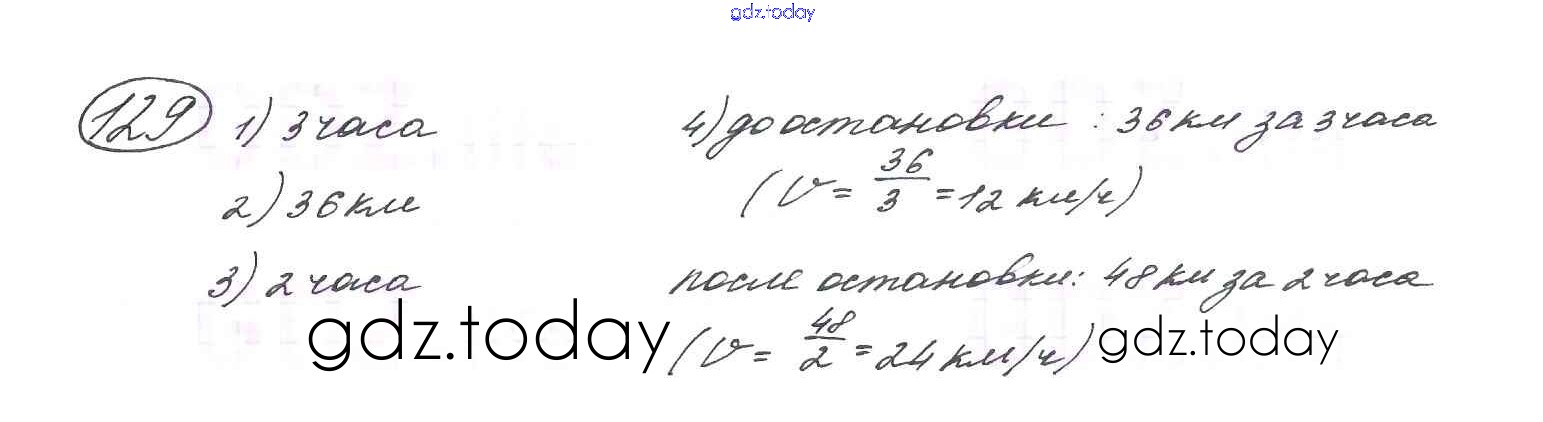 gdz.today
129 1) 3 часа
2) 36 км
3) 2 часа
4) до остановки : 36 км за 3 часа
(V = 36/3 = 12 км/ч)
после остановки: 48 км за 2 часа
(V = 48/2 = 24 км/ч)
gdz.today
gdz.today